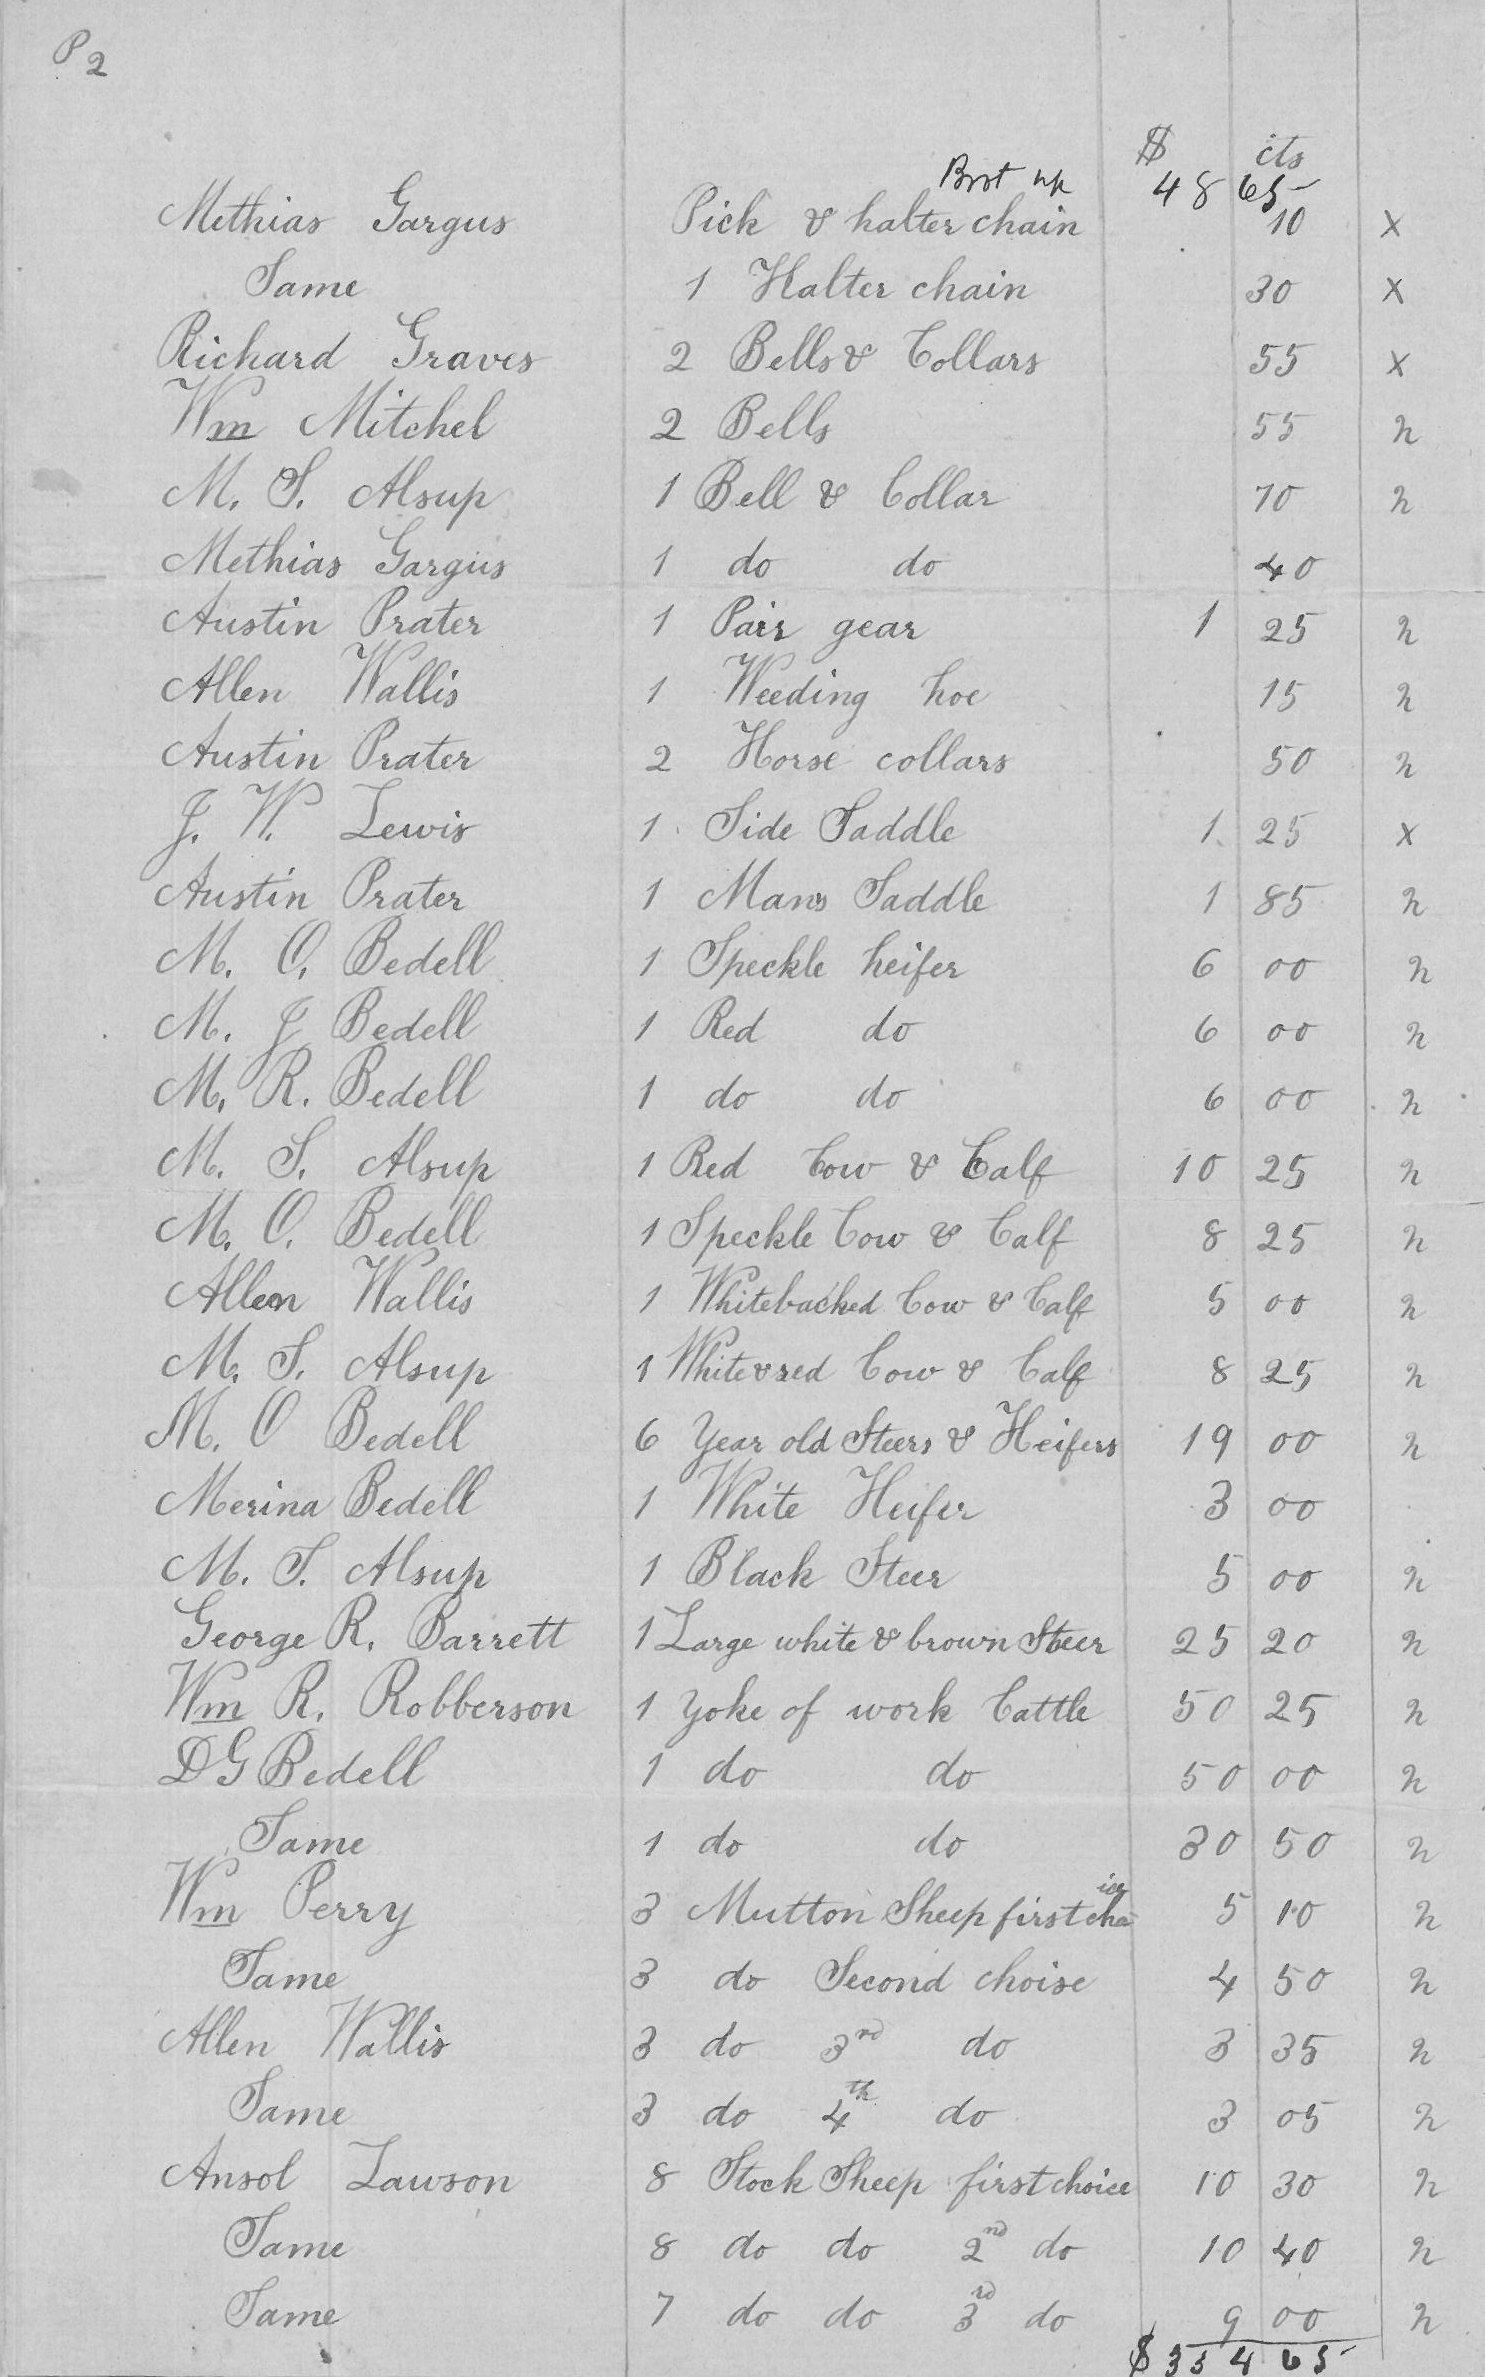 P 2
$ cts
Brot up 48 65
Methias Gargus Pick & halter chain 10 x
Same 1 Halter chain 30 x
Richard Graves 2 Bells & Collars 55 x
Wm Mitchel 2 Bells 55 n
M. S. Alsup 1 Bell & Collar 70 n
Methias Gargus 1 do do 40
Austin Prater 1 Pair gear 1 25 n
Allen Wallis 1 Weeding hoe 15 n
Austin Prater 2 Horse collars 50 n
J. W. Lewis 1 Side Saddle 1 25 x
Austin Prater 1 Mans Saddle 1 85 n
M. O. Bedell 1 Speckle heifer 6 00 n
M. J Bedell 1 Red do 6 00 n
M. R. Bedell 1 do do 6 00 n
M. S. Alsup 1 Red Cow & Calf 10 25 n
M. O. Bedell 1 Speckle Cow & Calf 8 25 n
Allen Wallis 1 Whitebacked Cow & Calf 5 00 n
M. S. Alsup 1 White & red Cow & Calf 8 25 n
M. O Bedell 6 Year old Steers & Heifers 19 00 n
Merina Bedell 1 White Heifer 3 00
M. S. Alsup 1 Black Steer 5 00 n
George R. Barrett 1 Large white & brown Steer 25 20 n
Wm R. Robberson 1 Yoke of work Cattle 50 25 n
D G Bedell 1 do do 50 00 n
Same 1 do do 30 50 n
Wm Perry 3 Mutton Sheep first choice 5 10 n
Same 3 do Second choise 4 50 n
Allen Wallis 3 do 3rd do 3 35 n
Same 3 do 4th do 3 05 n
Ansol Lawson 8 Stock Sheep first choice 10 30 n
Same 8 do do 2nd do 10 40 n
Same 7 do do 3rd do 9 00 n
$ 334 65